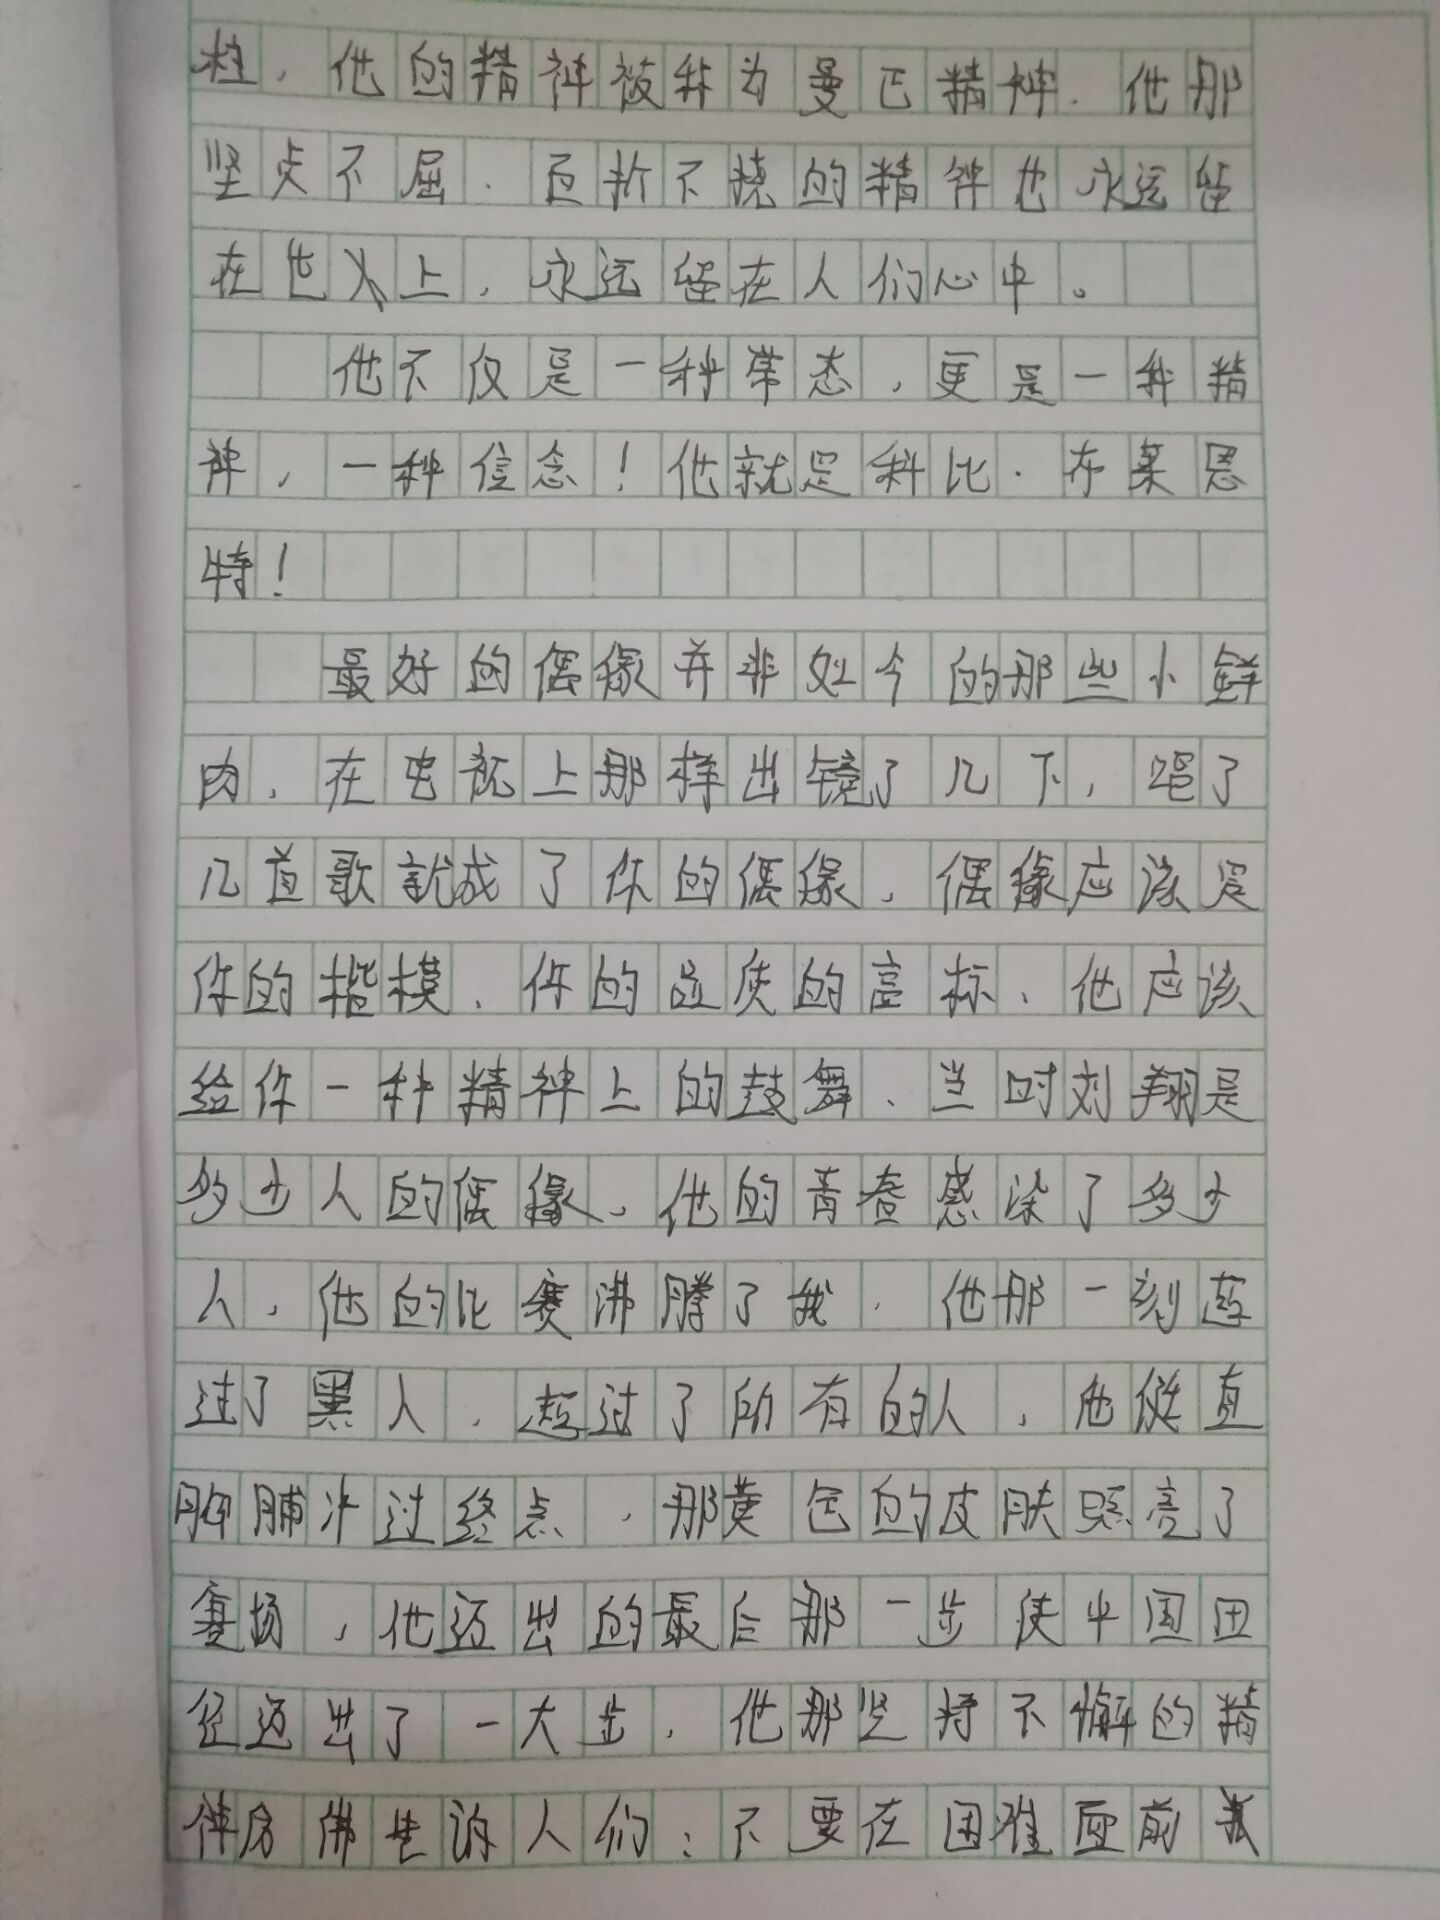 柱，他的精神被称为曼巴精神，他那
坚贞不屈，百折不挠的精神也永远留
在世上，永远留在人们心中。
他不仅是一种常态，更是一种精
神，一种信念！他就是科比·布莱恩
特！
最好的偶像并非如今的那些小鲜
肉，在电视上那样出镜了几下，唱了
几首歌就成了你的偶像，偶像应该是
你的楷模、你的品质的高标，他应该
给你一种精神上的鼓舞、当时刘翔是
多少人的偶像，他的青春感染了多少
人，他的比赛沸腾了我，他那一刻超
过了黑人，超过了所有的人，他挺直
胸脯冲过终点，那黄色的皮肤照亮了
赛场，他迈出的最后那一步使中国田
径迈出了一大步，他那坚持不懈的精
神仿佛告诉人们：不要在困难面前